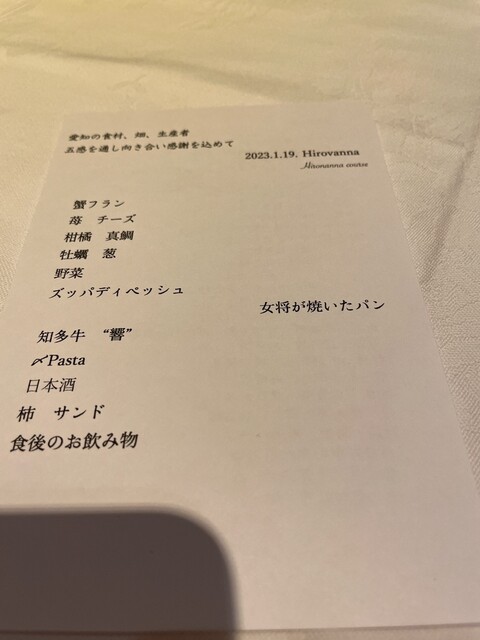 愛知の食材、畑、生産者
五感を通し向き合い感謝を込めて
2023.1.19. Hirovanna
Hirovanna course
蟹フラン
苺　チーズ
柑橘　真鯛
牡蠣　葱
野菜
ズッパディペッシュ
女将が焼いたパン
知多牛　“響”
〆Pasta
日本酒
柿　サンド
食後のお飲み物